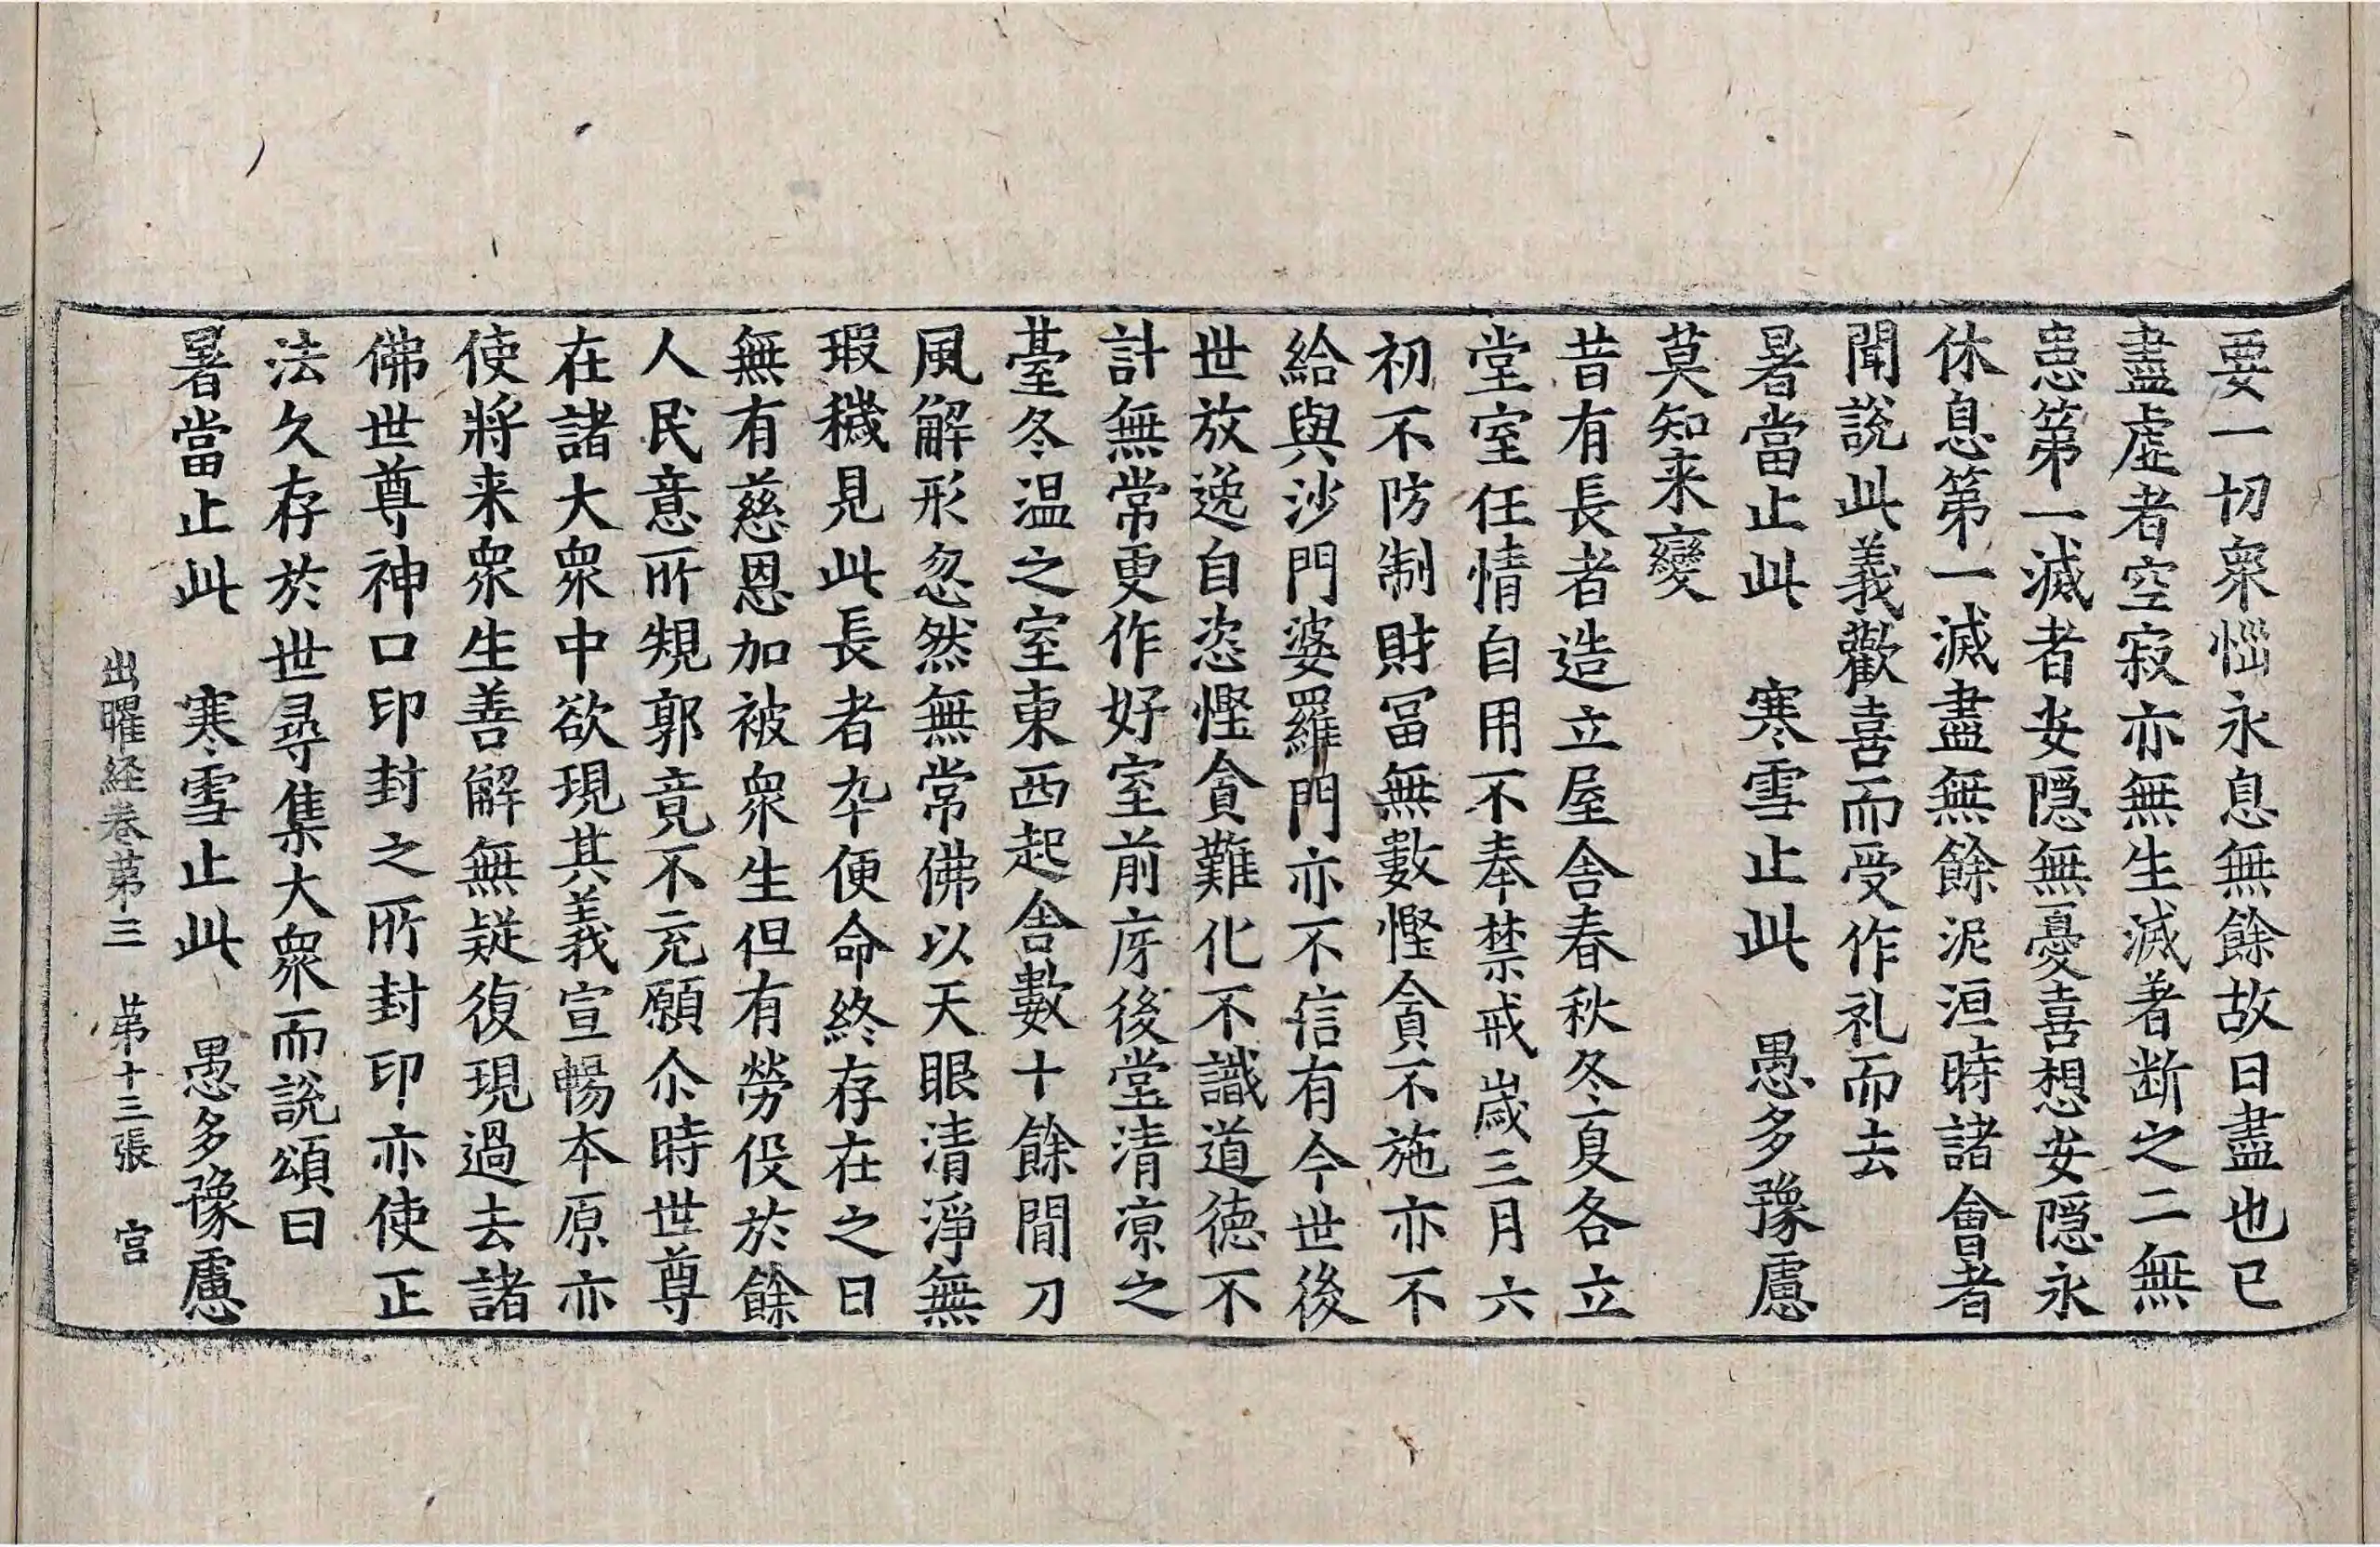 要一切衆惱永息無餘故曰盡也已
盡虛者空寂亦無生滅著斷之二無
患第一滅者安隱無憂喜想安隱永
休息第一滅盡無餘泥洹時諸會者
聞說此義歡喜而受作礼而去
暑當止此　寒雪止此　愚多豫慮
莫知来變
昔有長者造立屋舍春秋冬夏各立
堂室任情自用不奉禁戒歲三月六
初不防制財冨無數慳貪不施亦不
給與沙門婆羅門亦不信有今世後
世放逸自恣慳貪難化不識道德不
計無常更作好室前庌後堂清凉之
臺冬温之室東西起舍數十餘間刀
風解形忽然無常佛以天眼清淨無
瑕穢見此長者卒便命終存在之日
無有慈恩加被衆生但有勞役於餘
人民意所規郭竟不充願尒時世尊
在諸大衆中欲現其義宣暢本原亦
使將来衆生善解無疑復現過去諸
佛世尊神口印封之所封印亦使正
法久存於世尋集大衆而說頌曰
暑當止此　寒雪止此　愚多豫慮
出曜経卷第三　第十三張　宮